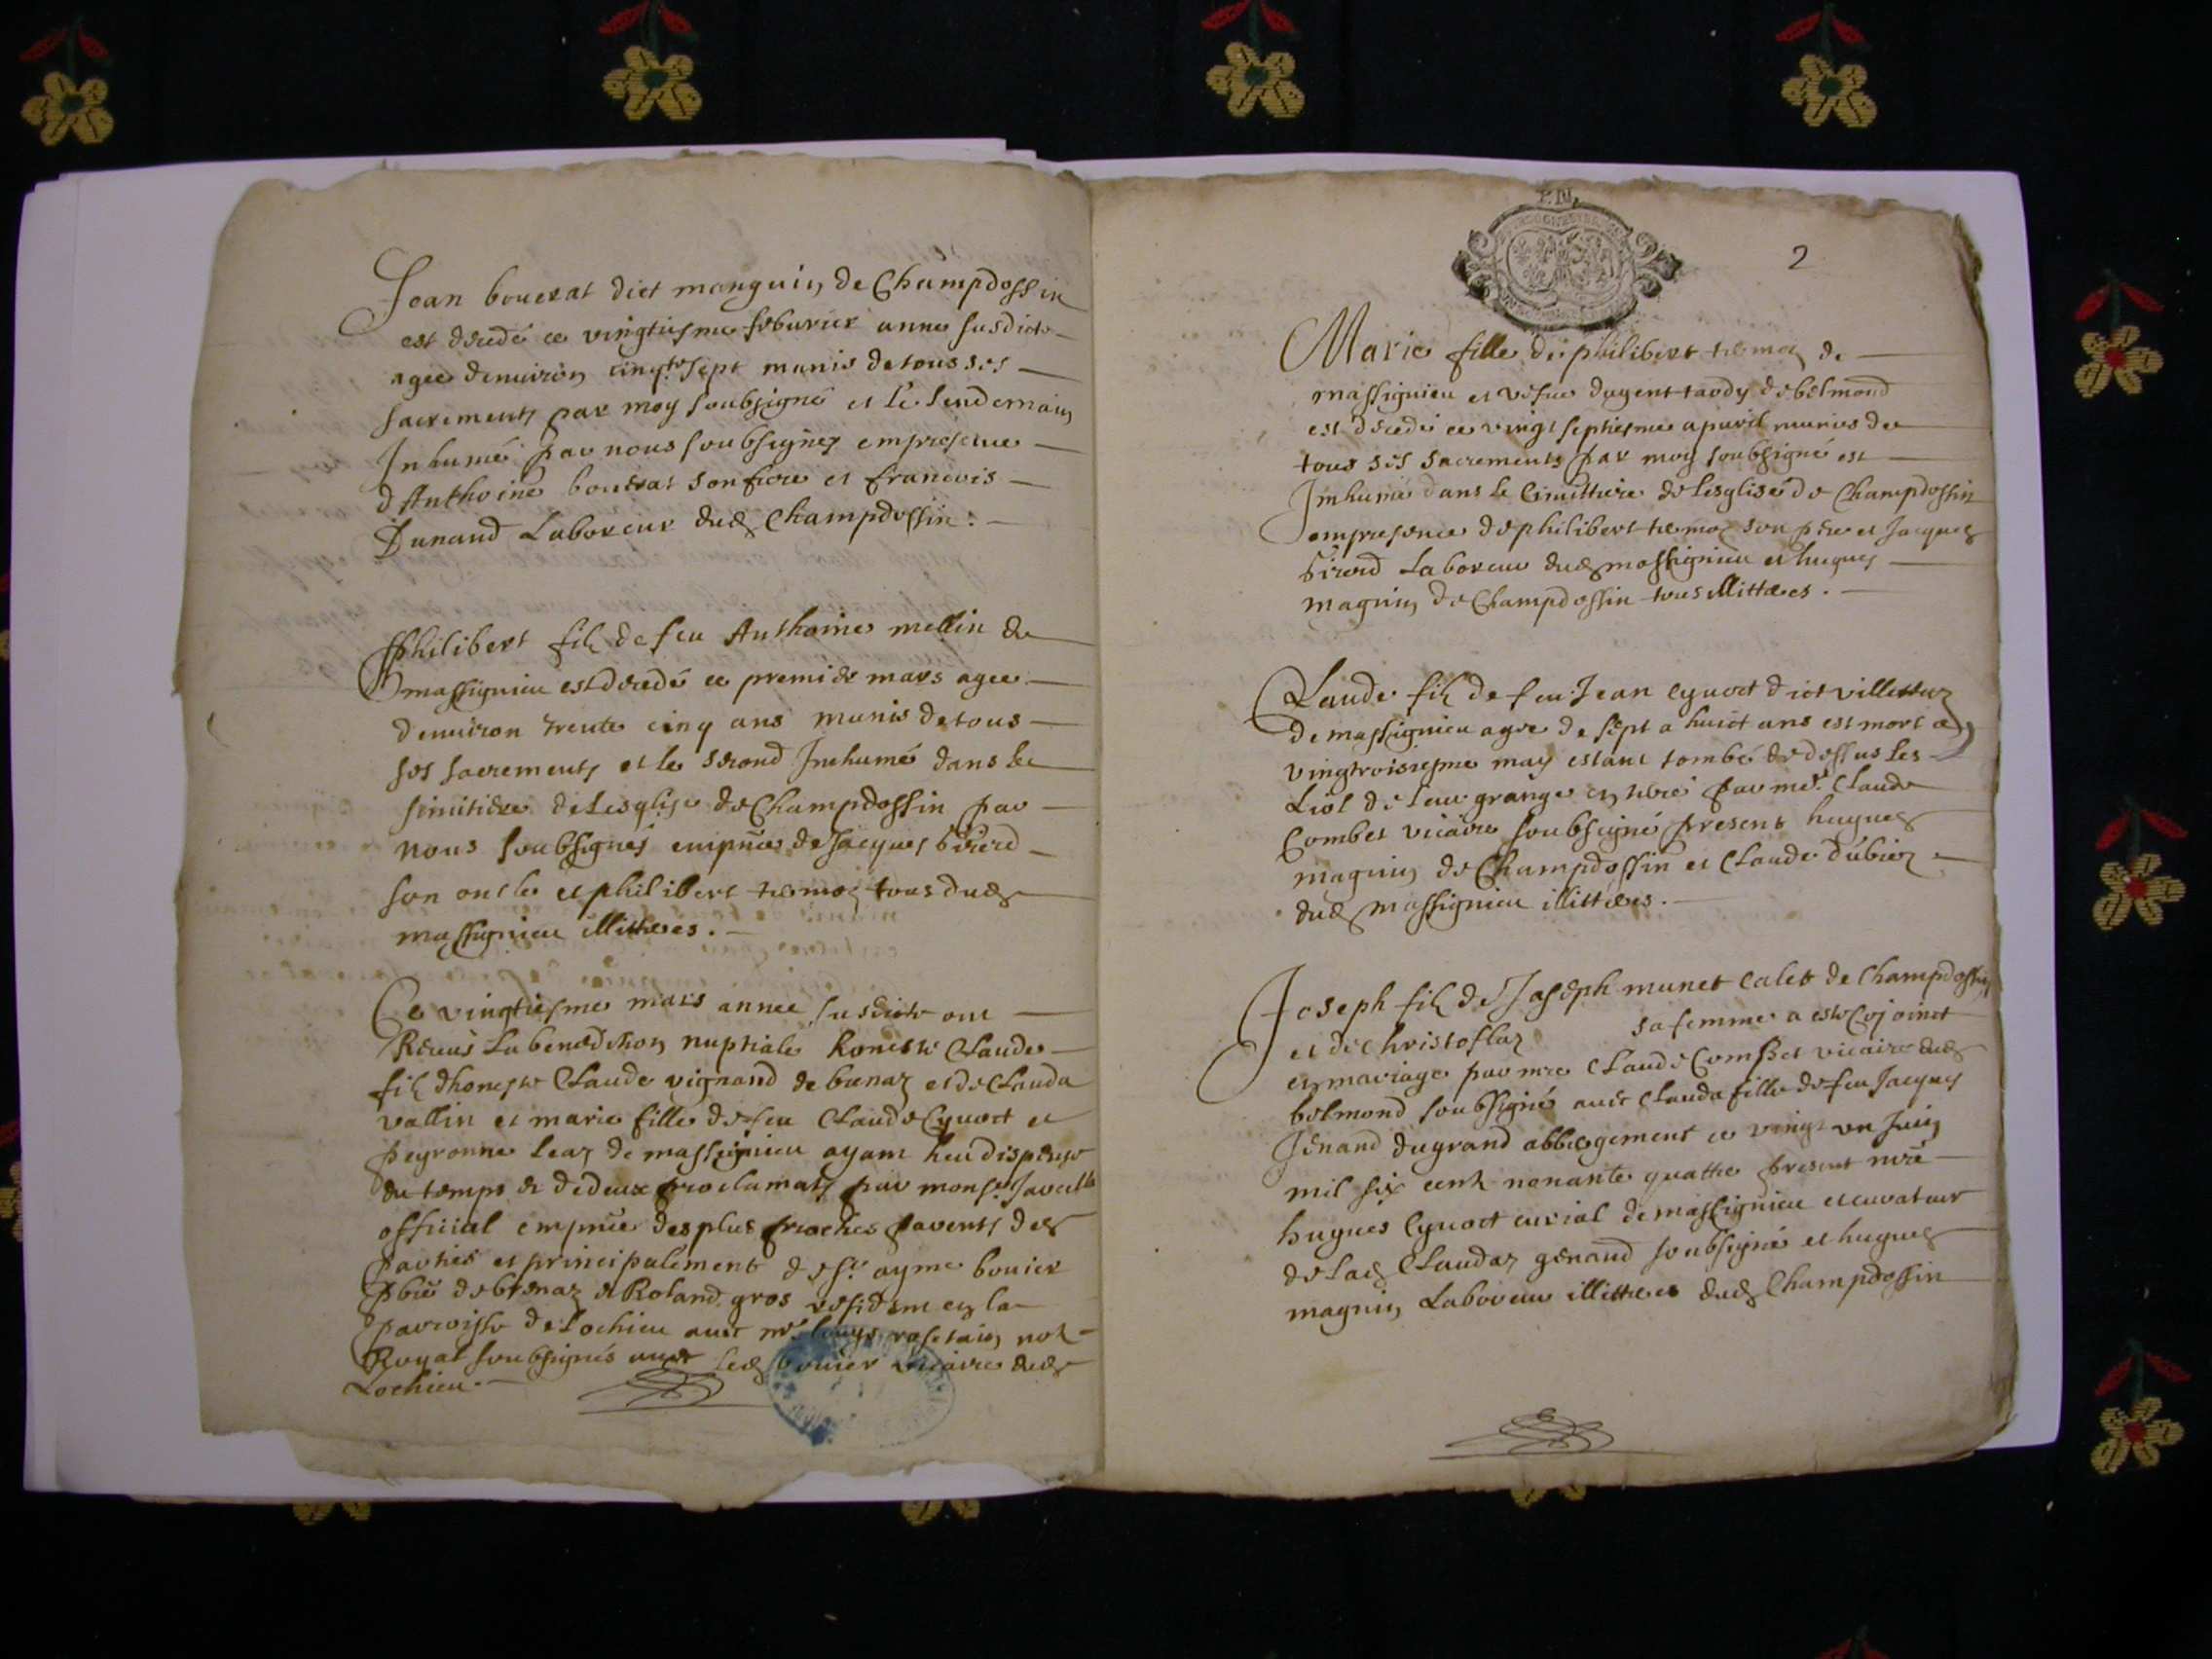 Jean bouerat dict monguin de Champdossin
est decedé ce vingtiesme feburier anné susdicte
agee denuiron cinqte sept munis de tous ses
sacrements par moy soubsigné et le lendemain
Inhumé par nous soubsignez en presence
dAnthoine bouerat son frere et francois
Dunand Laboreur dud Champdossin.
Philibert filz de feu Anthoine mellin de
massignieu est decedé ce premier mars agee
denuiron trente cinq ans munis de tous
ses sacrements et le second Inhumé dans le
simitiere de Lesglise de Champdossin par
nous soubsignés en pnce de Jacques
son oncle et philibert tous dud
massignieu illitteres.
Ce vingtiesme mars annee susdicte ont
Receus La benediction nuptiale honeste Claude
filz dhoneste Claude vignand de et de Clauda
vallin et marie fille de feu Claude Cyuoct et
peyronne de massignieu ayam heu dispense
du temps et de deux proclamats par monsr
official en pnce des plus proches parents des
parties et principalement de sr ayme bouier
pbre de et Roland gros resident en la
parroisse de Lochieu auec mre Louys not
Royal soubsignés auec led bouier vicaire dud
Lochieu.
2
Marie fille de philibert de
massignieu et vefue dugent tardy de belmond
est decedé ce vingt septiesme apuril munis de
tous ses sacrements par moy soubsigné est
Inhumé dans le Cimittiere de Lesglise de Champdossin
en presence de philibert son pere et Jacques
Laboreur dud massignieu et hugues
magnin de Champdossin tous illitteres.
Claude filz de feu Jean Cyuoct dict
de massignieu agee de sept a huict ans est mort ce
vingtroisiesme may estant tombé de dessus les
de leur grange par mre Claude
Combet vicaire soubsigné present hugues
magnin de Champdossin et Claude
dud massignieu illitteres.
Joseph filz de Joseph munet Calet de Champdossin
et de Christoflaz sa femme a este Cojoinct
en mariage par mre Claude Combet vicaire dud
belmond soubsigné auec Clauda fille de feu Jacques
Jenand du grand abbergement ce vingt un Juin
mil six cent nonante quattre present mre
hugues Cyuoct curial de massignieu et curateur
de lad Claudaz genand soubsigné et hugues
magnin Laboreur illitteres dud Champdossin